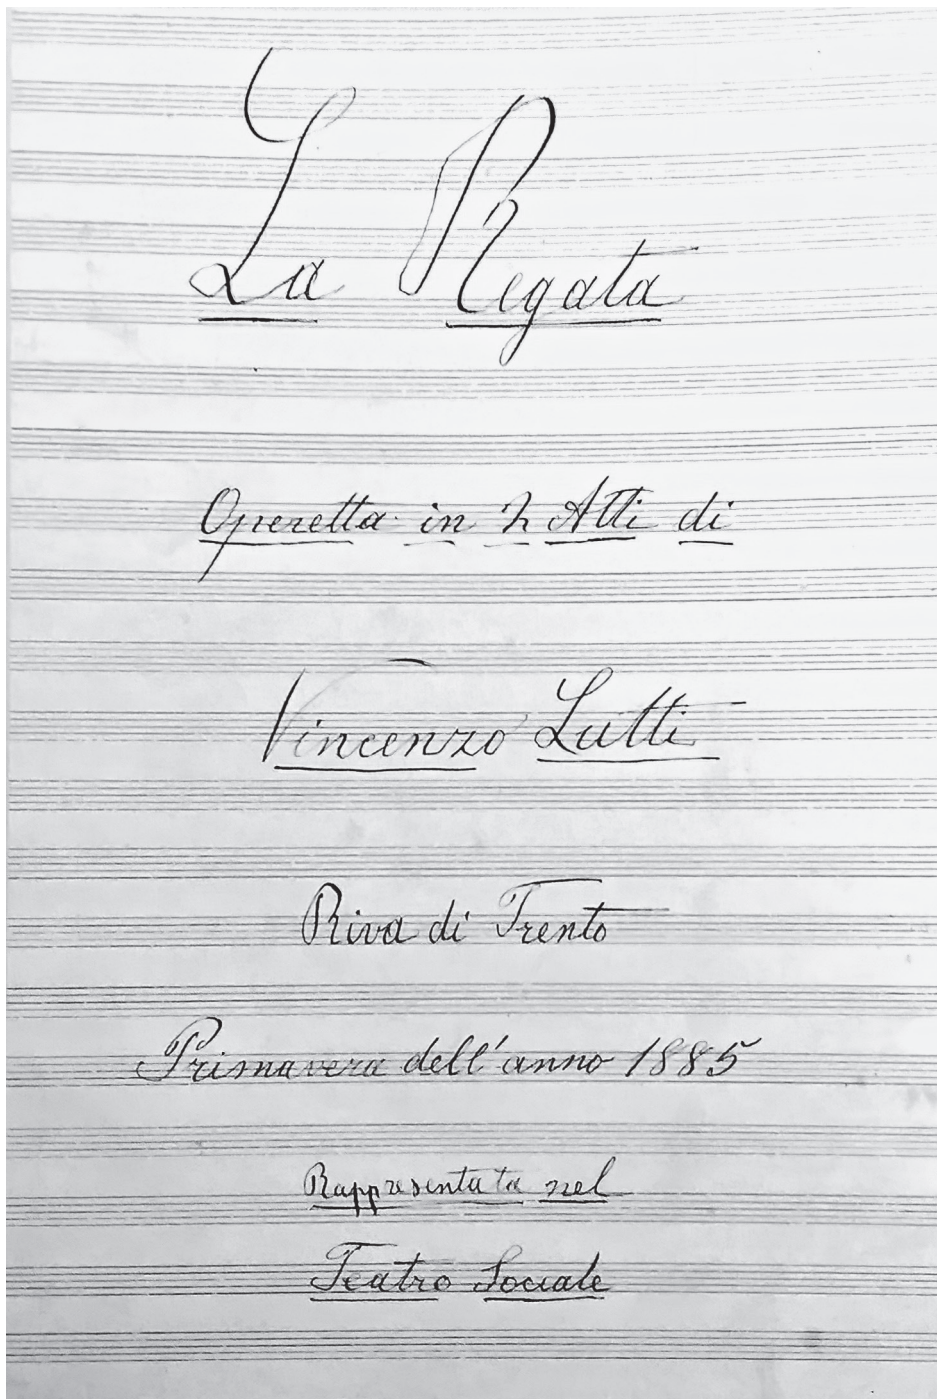 La Regata
Operetta in 2 Atti di
Vincenzo Lutti
Riva di Trento
Primavera dell'anno 1885
Rappresentata nel
Teatro Sociale